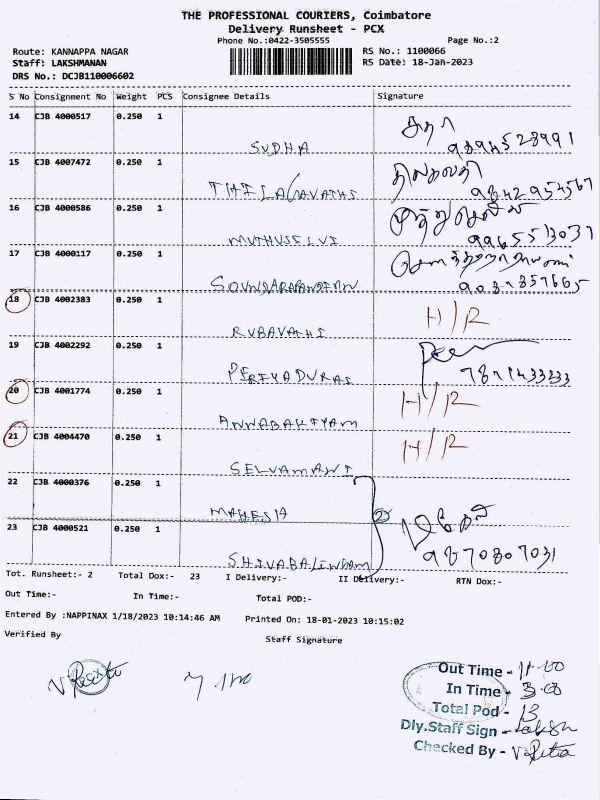 THE PROFESSIONAL COURIERS, Coimbatore
Delivery Runsheet - PCX
Phone No.:0422-3505555
Page No.:2
Route: KANNAPPA NAGAR
RS No.: 1100066
Staff: LAKSHMANAN
RS Date: 18-Jan-2023
DRS No.: DCJB110006602
S No Consignment No Weight PCS Consignee Details Signature
14 CJB 4000517 0.250 1
SUDHA சுதா 9894528991
15 CJB 4007472 0.250 1
THILAGAVATHI திலகவதி 9842954567
16 CJB 4000586 0.250 1
MUTHUSELVI முத்துசெல்வி 9965513031
17 CJB 4000117 0.250 1
SOUNDARAPANDIAN
18 CJB 4002383 0.250 1
RUBAVATHI H/R
19 CJB 4002292 0.250 1
PERIYADURAI 7871433333
20 CJB 4001774 0.250 1
ANNABAKIYAM H/R
21 CJB 4004470 0.250 1
SELVAMANI H/R
22 CJB 4000376 0.250 1
MAHESH
23 CJB 4000521 0.250 1
SHIVABALINGAM 9870807031
Tot. Runsheet:- 2 Total Dox:- 23 I Delivery:- II Delivery:- RTN Dox:-
Out Time:- In Time:- Total POD:-
Entered By :NAPPINAX 1/18/2023 10:14:46 AM Printed On: 18-01-2023 10:15:02
Verified By
Staff Signature
Out Time - 11.00
In Time - 3.00
Total Pod - 13
Dly.Staff Sign -
Checked By -